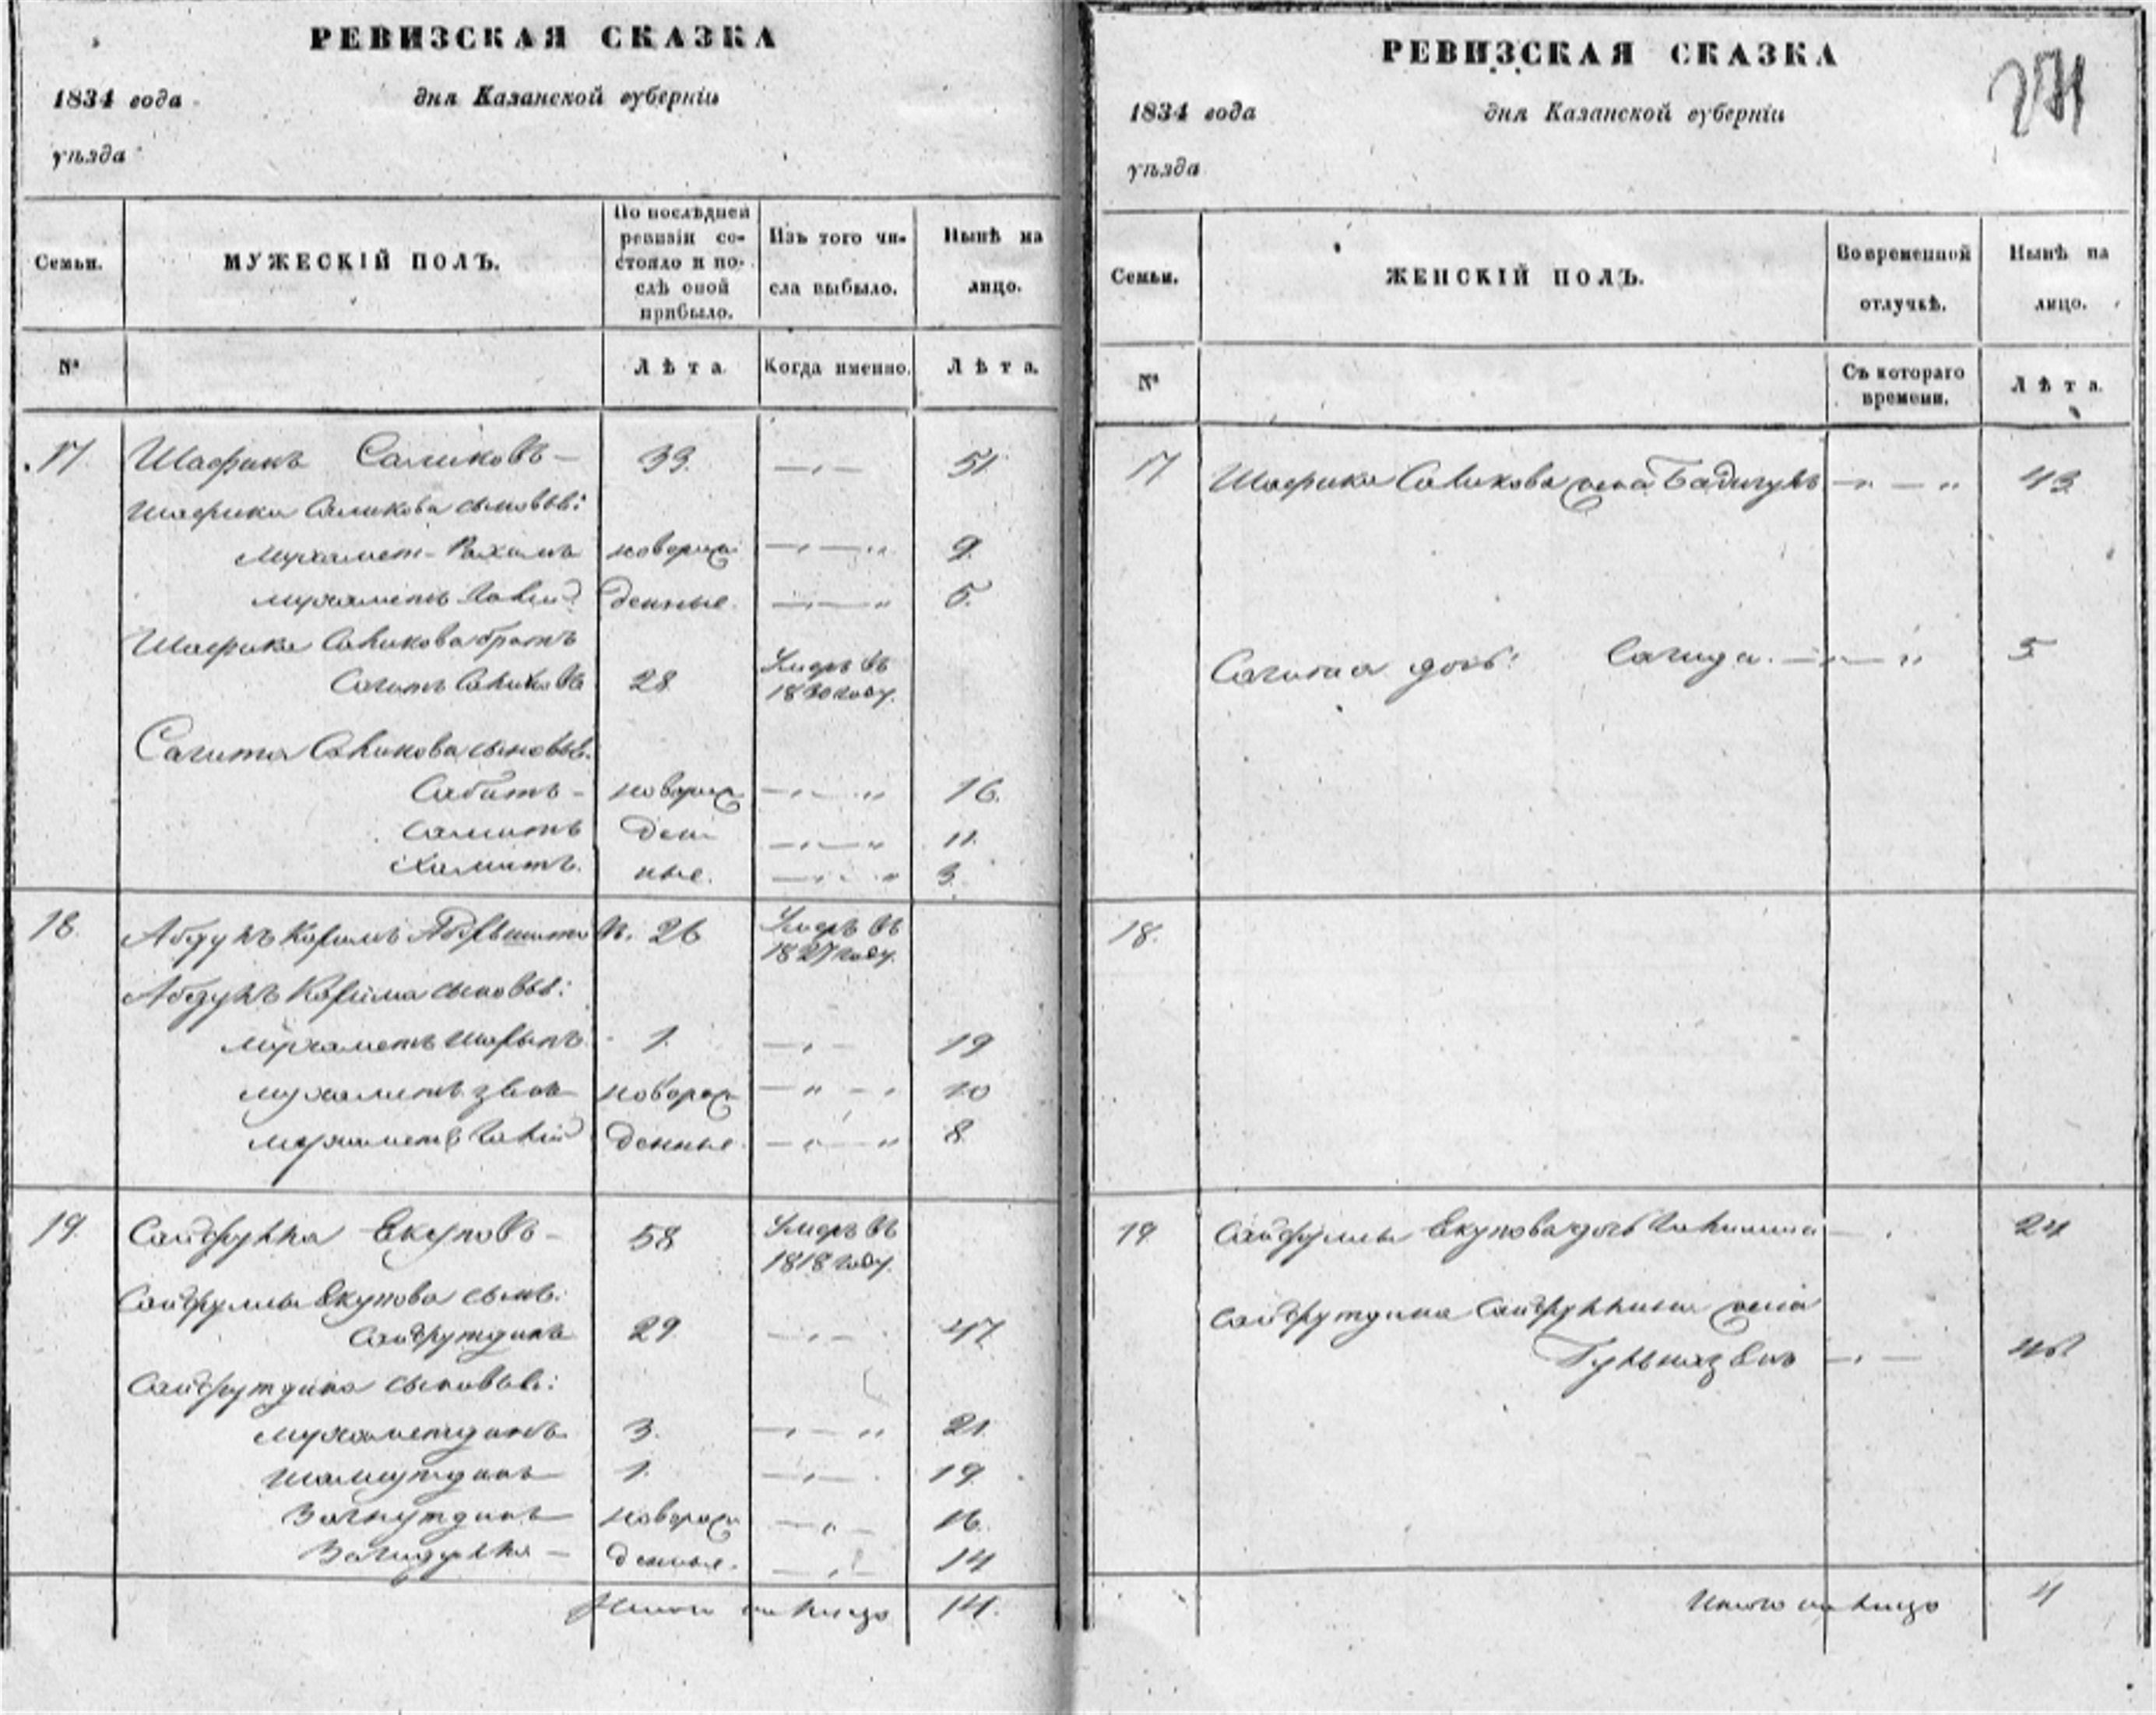 РЕВИЗСКАЯ СКАЗКА
1834 года дня Казанской губерніи
уѣзда
Семьи.
МУЖЕСКІЙ ПОЛЪ.
По послѣдней
ревизіи со-
стояло и по-
слѣ оной
прибыло.
Изъ того чи-
сла выбыло.
Нынѣ на
лицо.
№
Лѣта
Когда именно.
Лѣта.
17. Шафикъ Саликовъ — 33. 51
Шафика Саликова сыновья:
Мухамет-Рахимъ новорож 9.
Мухаметъ денные. 5.
Шафика Саликова братъ
Сагитъ Саликовъ 28 Умеръ въ
1830 году.
Сагита Саликова сыновья.
Сабитъ - новорож 16.
Самитъ ден 11.
Хамитъ. ные. 3.
18. Абдулъ Каримъ 26 Умеръ въ
1827 году.
Абдулъ Карима сыновья:
Мухаметъ Шарыпъ 1. 19
Мухаметъ новорож 10
Мухаметъ денные. 8
19. Сайфулла Екуповъ - 58 Умеръ въ
1818 году.
Сайфуллы Екупова сынъ:
Сайфутдинъ 29 47
Сайфутдина сыновья:
Мухаметдинъ 3. 21
Шамсутдинъ 1. 19.
новорож 16.
Загидулла — денные. 14
Итого на лицо 14.
РЕВИЗСКАЯ СКАЗКА
271
1834 года дня Казанской губерніи
уѣзда
Семьи.
ЖЕНСКІЙ ПОЛЪ.
Во временной
отлучкѣ.
Нынѣ на
лицо.
№
Съ котораго
времени.
Лѣта.
17 Шафика Саликова жена 43
Сагита дочь: Сагида. 5
18.
19 Сайфуллы Екупова дочь 24
Сайфутдина Сайфуллина жена
Итого на лицо 4